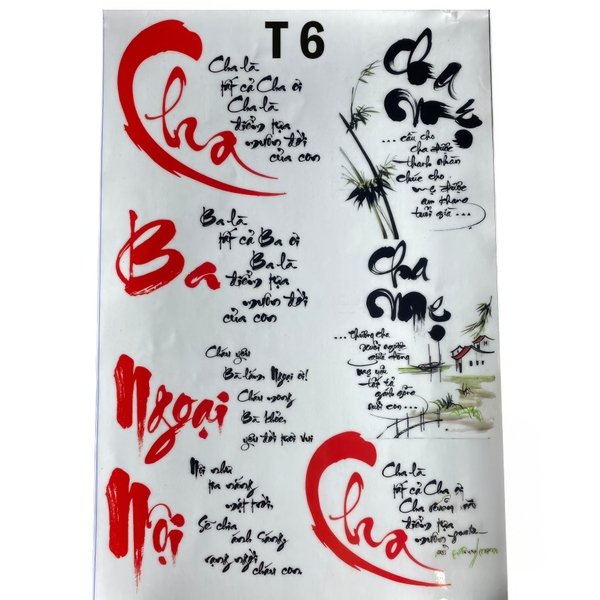 T6
Cha
Cha là
tất cả Cha ơi
Cha là
điểm tựa
muôn đời
của con
Cha Mẹ
... cầu cho
cha được
thanh nhàn
chúc cho
mẹ được
an khang
tuổi già ...
Ba
Ba là
tất cả Ba ơi
Ba là
điểm tựa
muôn đời
của con
Cha
Mẹ
... thương cha
xuôi ngược
mẹ yêu
tất tả
gánh gồng
nuôi con ...
Ngoại
Cháu yêu
Bà lắm Ngoại ơi!
Cháu mong
Bà khỏe,
yêu đời tươi vui
Nội
Nội như
tia nắng
mặt trời
Sẽ chia
ánh sáng
rạng ngời
cháu con
Cha
Cha là
tất cả Cha ơi
Cha
điểm tựa
muôn